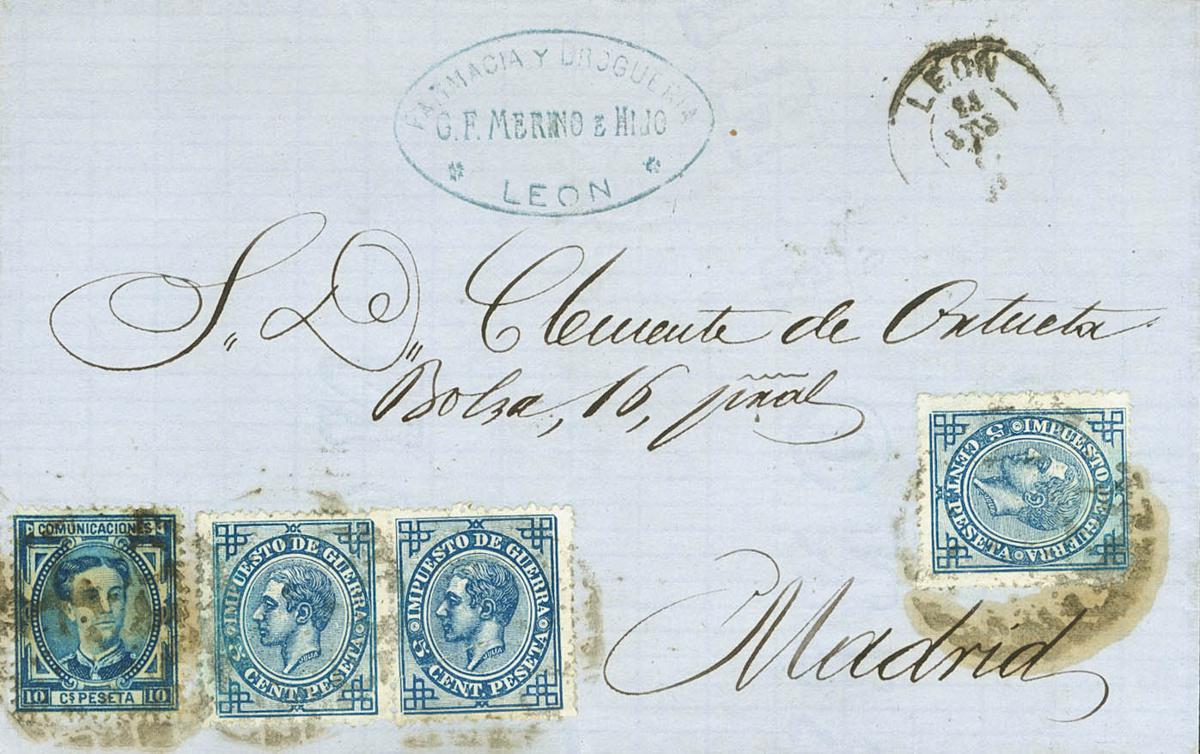 FARMACIA Y DROGUERIA
G. F. MERINO E HIJO
LEON
LEON
S. D. Clemente de Ortueta
Bolsa, 16, pñal
Madrid
COMUNICACIONES
10 Cs PESETA 10
IMPUESTO DE GUERRA
5 CENT PESETA
JULIA
IMPUESTO DE GUERRA
5 CENT PESETA
JULIA
IMPUESTO DE GUERRA
5 CENT PESETA